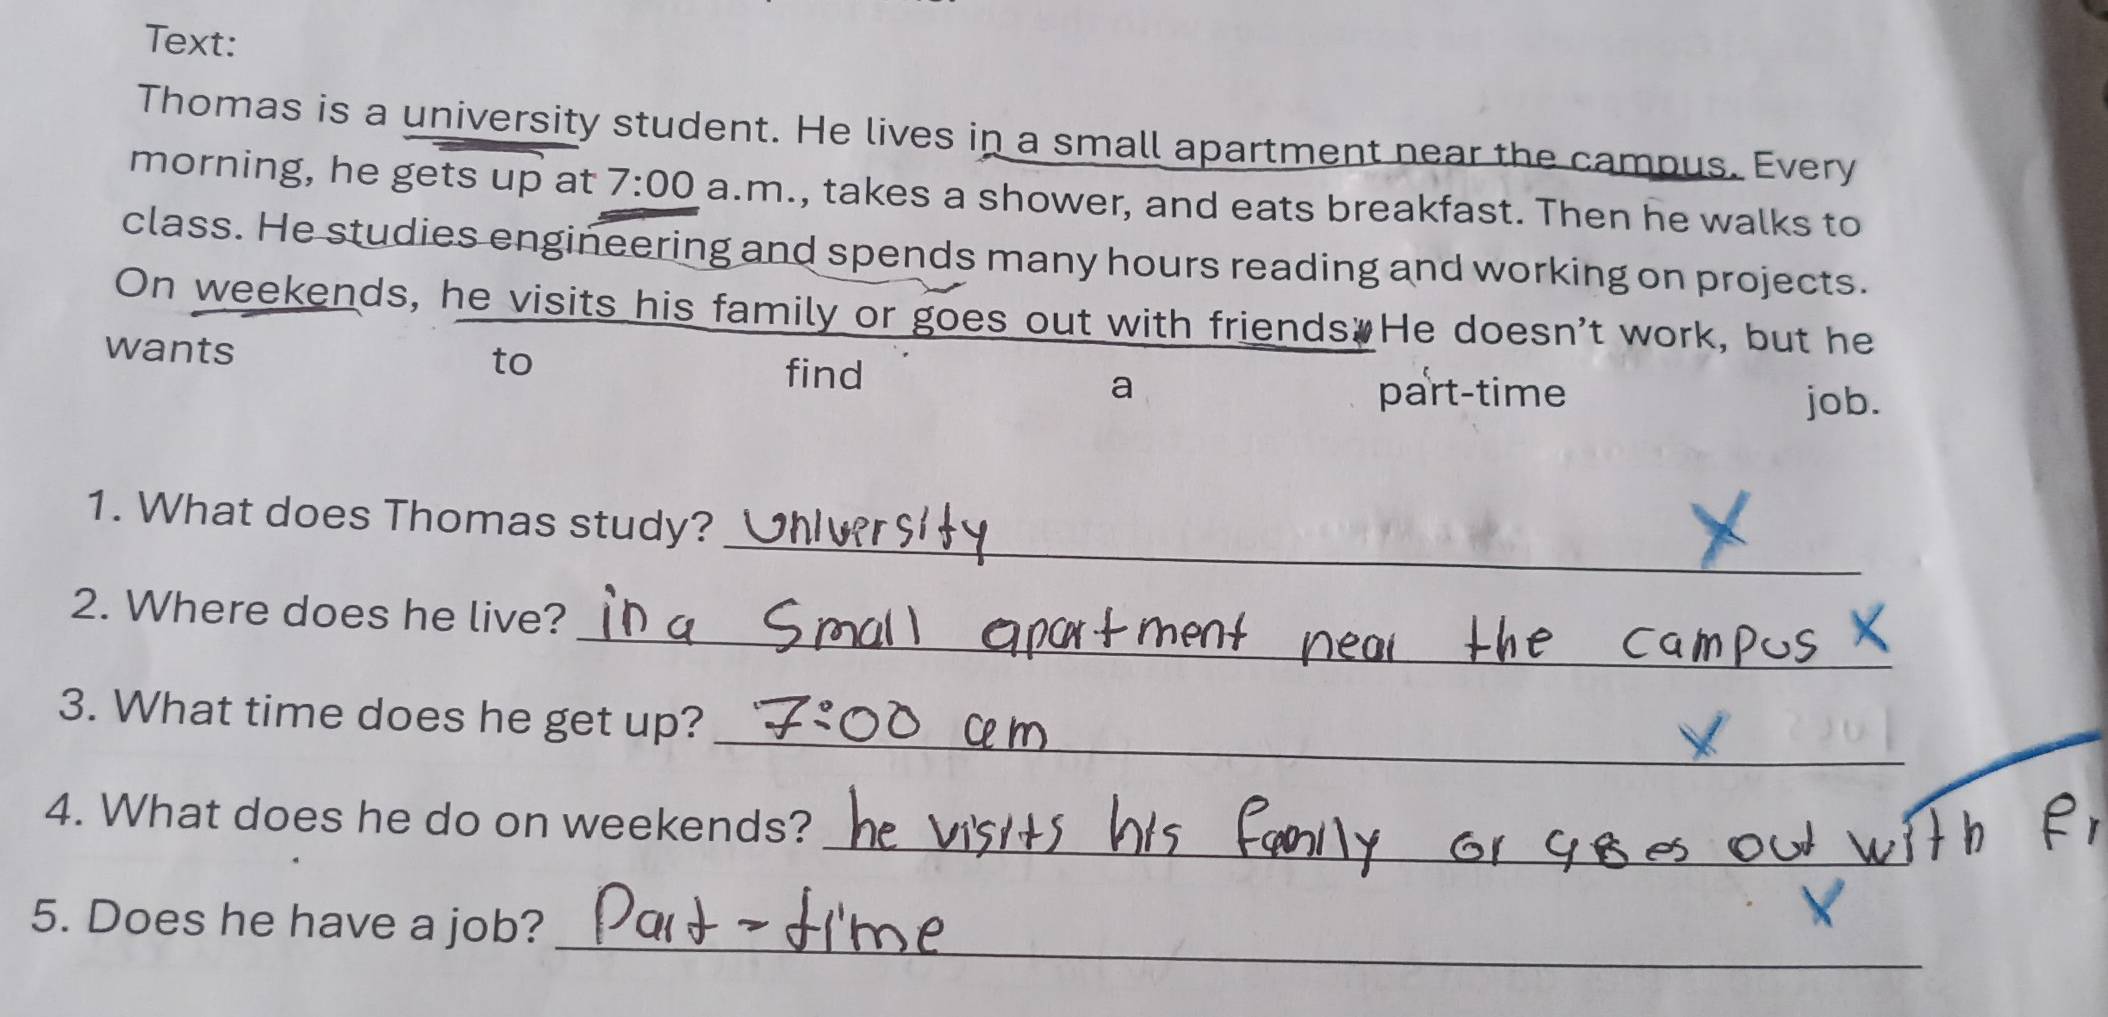 Text:
Thomas is a university student. He lives in a small apartment near the campus. Every
morning, he gets up at 7:00 a.m., takes a shower, and eats breakfast. Then he walks to
class. He studies engineering and spends many hours reading and working on projects.
On weekends, he visits his family or goes out with friends. He doesn't work, but he
wants to find a part-time job.
1. What does Thomas study? University
2. Where does he live? in a small apartment near the campus
3. What time does he get up? 7:00 am
4. What does he do on weekends? he visits his family or goes out with fr
5. Does he have a job? Part-time